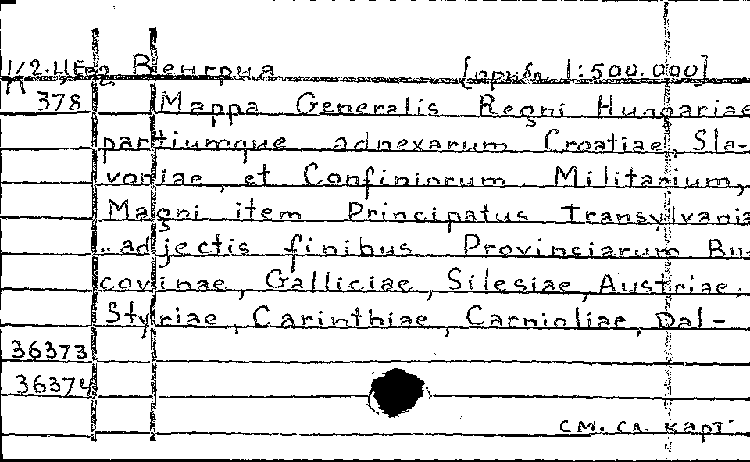 Венгрия [прибл 1:500.000]
378 Mappa Generalis Regni Hungariae
partiumque adnexarum Croatiae, Sla-
voniae, et Confiniorum Militarium,
Magni item Principatus Transylvania
adjectis finibus Provinciarum Bu-
covinae, Galliciae, Silesiae, Austriae,
Styriae, Carinthiae, Carnioliae, Dal-
36373
36374
см. сл. карт